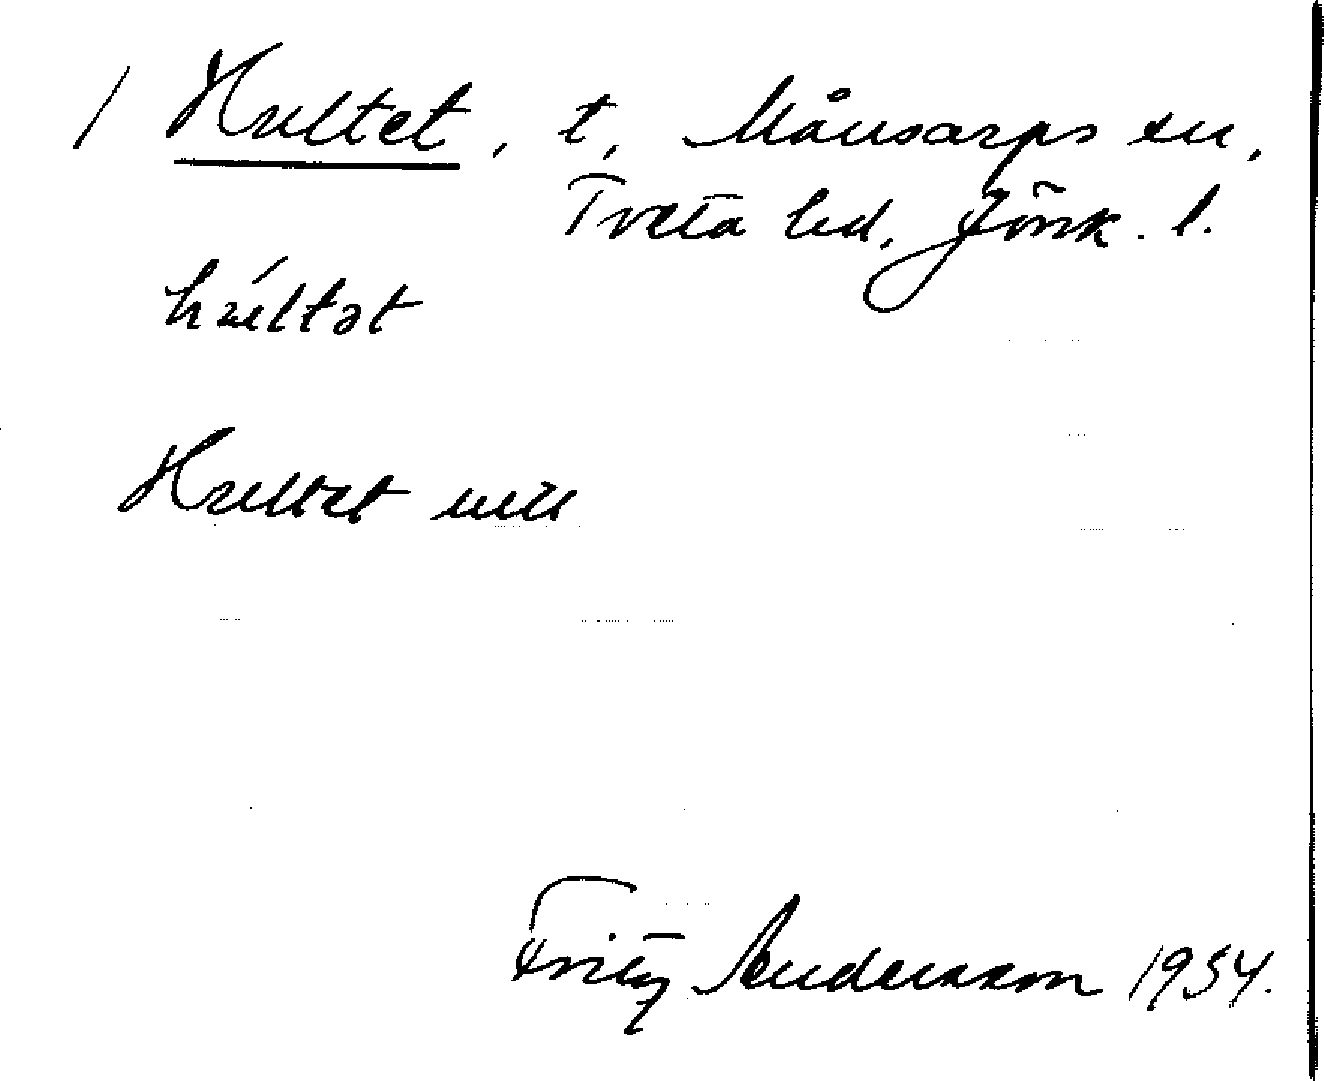 / Hultet, t, Månsarps sn,
Tveta hd, Jönk. l.
húltət
Hultet
Fritz Andersson 1954.